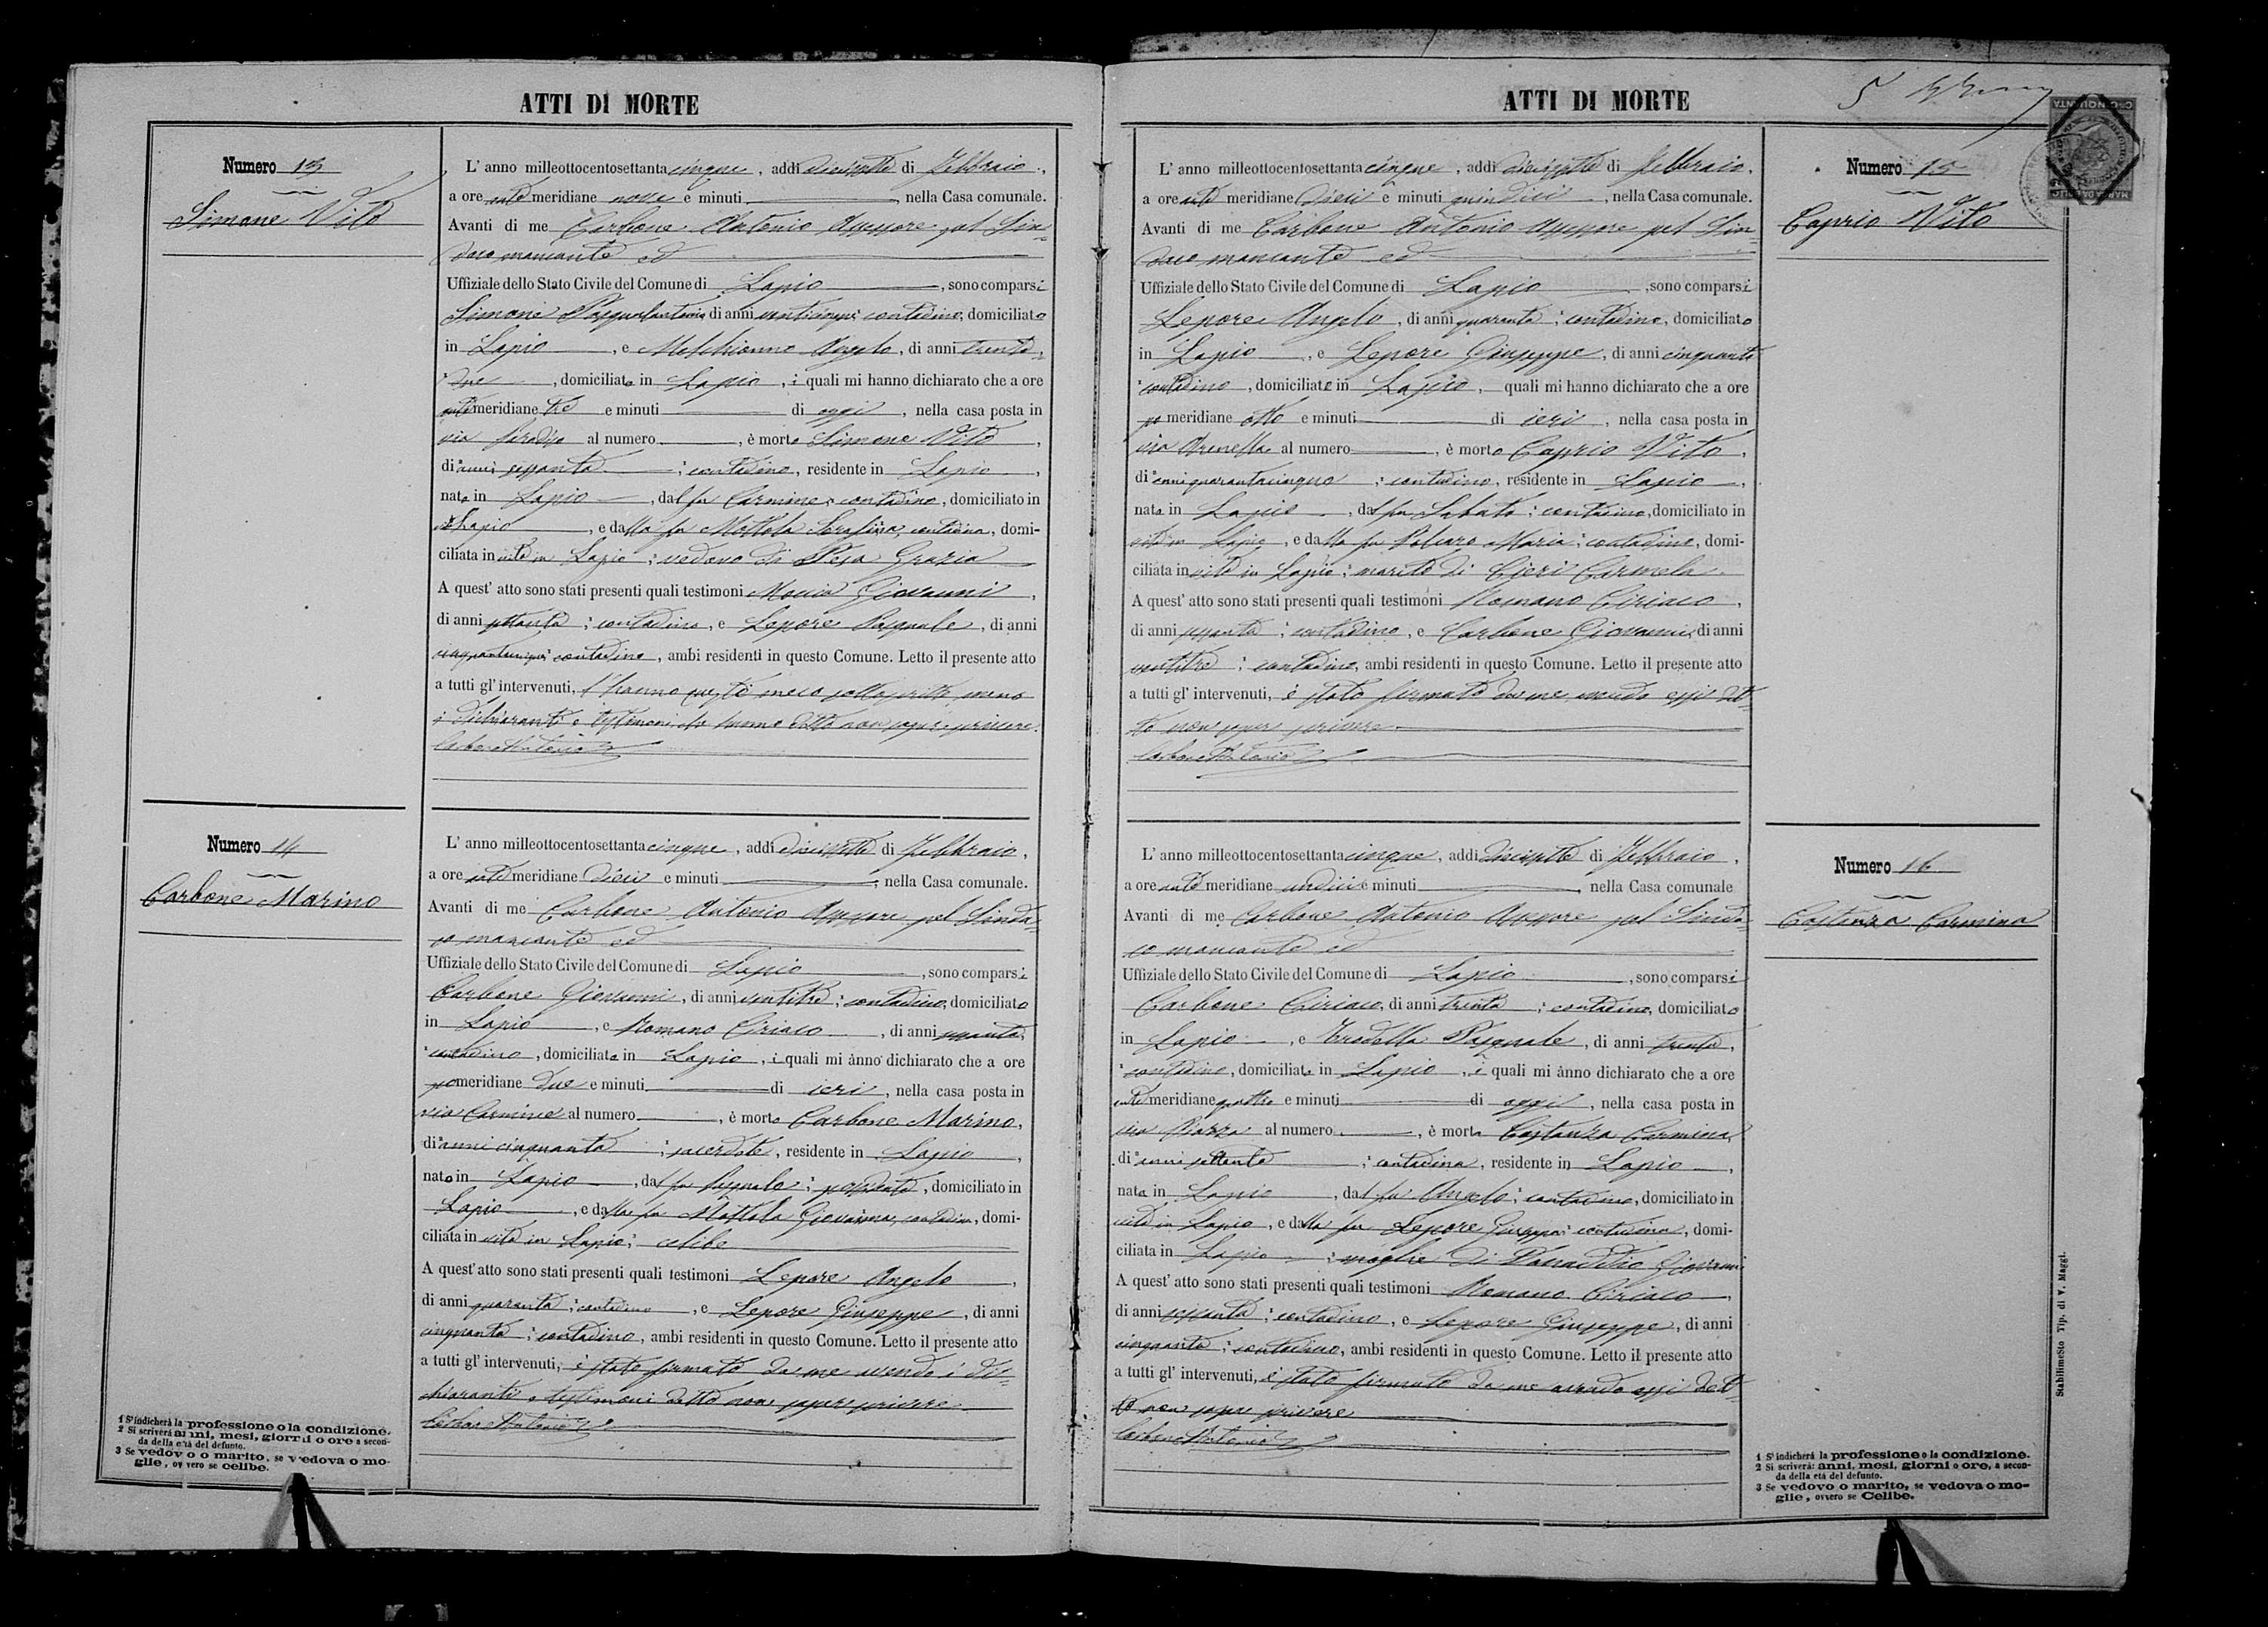 ATTI DI MORTE
Numero 13
Simone Vito
L' anno milleottocentosettantacinque, addì diciassette di Febbraio,
a ore antimeridiane nove e minuti, nella Casa comunale.
Avanti di me Carbone Antonio Assessore pel Sin=
daco mancante ed
Uffiziale dello Stato Civile del Comune di Lapio, sono comparsi
Simone Pasqualantonio di anni venticinque: contadino, domiciliato
in Lapio, e Melchionno Angelo, di anni trenta=
due, domiciliato in Lapio, i quali mi hanno dichiarato che a ore
antimeridiane tre e minuti di oggi, nella casa posta in
via al numero, è morto Simone Vito,
di anni sessanta: contadino, residente in Lapio,
nato in Lapio, dal fu Carmine: contadino, domiciliato in
Lapio, e dalla fu Mottola Serafina, contadina, domi-
ciliata in vita in Lapio: vedovo di Pesa Grazia
A quest' atto sono stati presenti quali testimoni Giovanni,
di anni settanta: contadino, e Lepore Pasquale, di anni
cinquantacinque: contadino, ambi residenti in questo Comune. Letto il presente atto
a tutti gl' intervenuti, l'hanno questi meco sottoscritto meno
i dichiaranti e testimoni che hanno detto non saper scrivere.
Carbone Antonio
Numero 14
Carbone Marino
L' anno milleottocentosettantacinque, addì diciassette di Febbraio,
a ore antimeridiane dieci e minuti, nella Casa comunale.
Avanti di me Carbone Antonio Assessore pel Sinda=
co mancante ed
Uffiziale dello Stato Civile del Comune di Lapio, sono comparsi
Carbone Giovanni, di anni ventitre: contadino, domiciliato
in Lapio, e Romano Ciriaco, di anni sessanta,
contadino, domiciliato in Lapio, i quali mi ànno dichiarato che a ore
pomeridiane due e minuti di ieri, nella casa posta in
via Carmine al numero, è morto Carbone Marino,
di anni cinquanta: sacerdote, residente in Lapio,
nato in Lapio, dal fu Pasquale: possidente, domiciliato in
Lapio, e dalla fu Mottola Giovanna, contadina, domi-
ciliata in vita in Lapio: celibe
A quest' atto sono stati presenti quali testimoni Lepore Angelo,
di anni quaranta: contadino, e Lepore Giuseppe, di anni
cinquanta: contadino, ambi residenti in questo Comune. Letto il presente atto
a tutti gl' intervenuti, è stato firmato da me avendo i di=
chiaranti e testimoni detto non sapere scrivere
Carbone Antonio
1 S'indicherà la professione o la condizione.
2 Si scriverà anni, mesi, giorni o ore a secon-
da della età del defunto.
3 Se vedovo o marito, se vedova o mo-
glie, ovvero se celibe.
ATTI DI MORTE
5
Numero 15
Caprio Vito
L' anno milleottocentosettantacinque, addì diciassette di Febbraio,
a ore antimeridiane dieci e minuti quindici, nella Casa comunale.
Avanti di me Carbone Antonio Assessore pel Sin=
daco mancante ed
Uffiziale dello Stato Civile del Comune di Lapio, sono comparsi
Lepore Angelo, di anni quaranta: contadino, domiciliato
in Lapio, e Lepore Giuseppe, di anni cinquanta
contadino, domiciliato in Lapio, quali mi hanno dichiarato che a ore
pomeridiane otto e minuti di ieri, nella casa posta in
via Arenella al numero, è morto Caprio Vito,
di anni quarantacinque: contadino, residente in Lapio,
nato in Lapio, dal fu Sabato: contadino, domiciliato in
vita in Lapio, e dalla fu Maria: contadina, domi-
ciliata in vita in Lapio: marito di Cieri Carmela
A quest' atto sono stati presenti quali testimoni Romano Ciriaco,
di anni sessanta: contadino, e Carbone Giovanni, di anni
ventitre: contadino, ambi residenti in questo Comune. Letto il presente atto
a tutti gl' intervenuti, è stato firmato da me avendo essi det=
to non saper scrivere
Carbone Antonio
Numero 16
Costanza Carmina
L' anno milleottocentosettantacinque, addì diciassette di Febbraio,
a ore antimeridiane undici e minuti, nella Casa comunale
Avanti di me Carbone Antonio Assessore pel Sinda=
co mancante ed
Uffiziale dello Stato Civile del Comune di Lapio, sono comparsi
Carbone Ciriaco, di anni trenta: contadino, domiciliato
in Lapio, e Trodella Pasquale, di anni trenta,
contadino, domiciliato in Lapio, i quali mi ànno dichiarato che a ore
antimeridiane quattro e minuti di oggi, nella casa posta in
via Piazza al numero, è morta Costanza Carmina,
di anni settanta: contadina, residente in Lapio,
nata in Lapio, dal fu Angelo: contadino, domiciliato in
vita in Lapio, e dalla fu Lepore Giuseppa: contadina, domi-
ciliata in Lapio: moglie di Giovanni
A quest' atto sono stati presenti quali testimoni Romano Ciriaco,
di anni sessanta: contadino, e Lepore Giuseppe, di anni
cinquanta: contadino, ambi residenti in questo Comune. Letto il presente atto
a tutti gl' intervenuti, è stato firmato da me avendo essi det=
to non sapere scrivere
Carbone Antonio
1 S'indicherà la professione o la condizione.
2 Si scriverà: anni, mesi, giorni o ore, a secon-
da della età del defunto.
3 Se vedovo o marito, se vedova o mo-
glie, ovvero se Celibe.
Stabilimesto Tip. di V. Maggi.